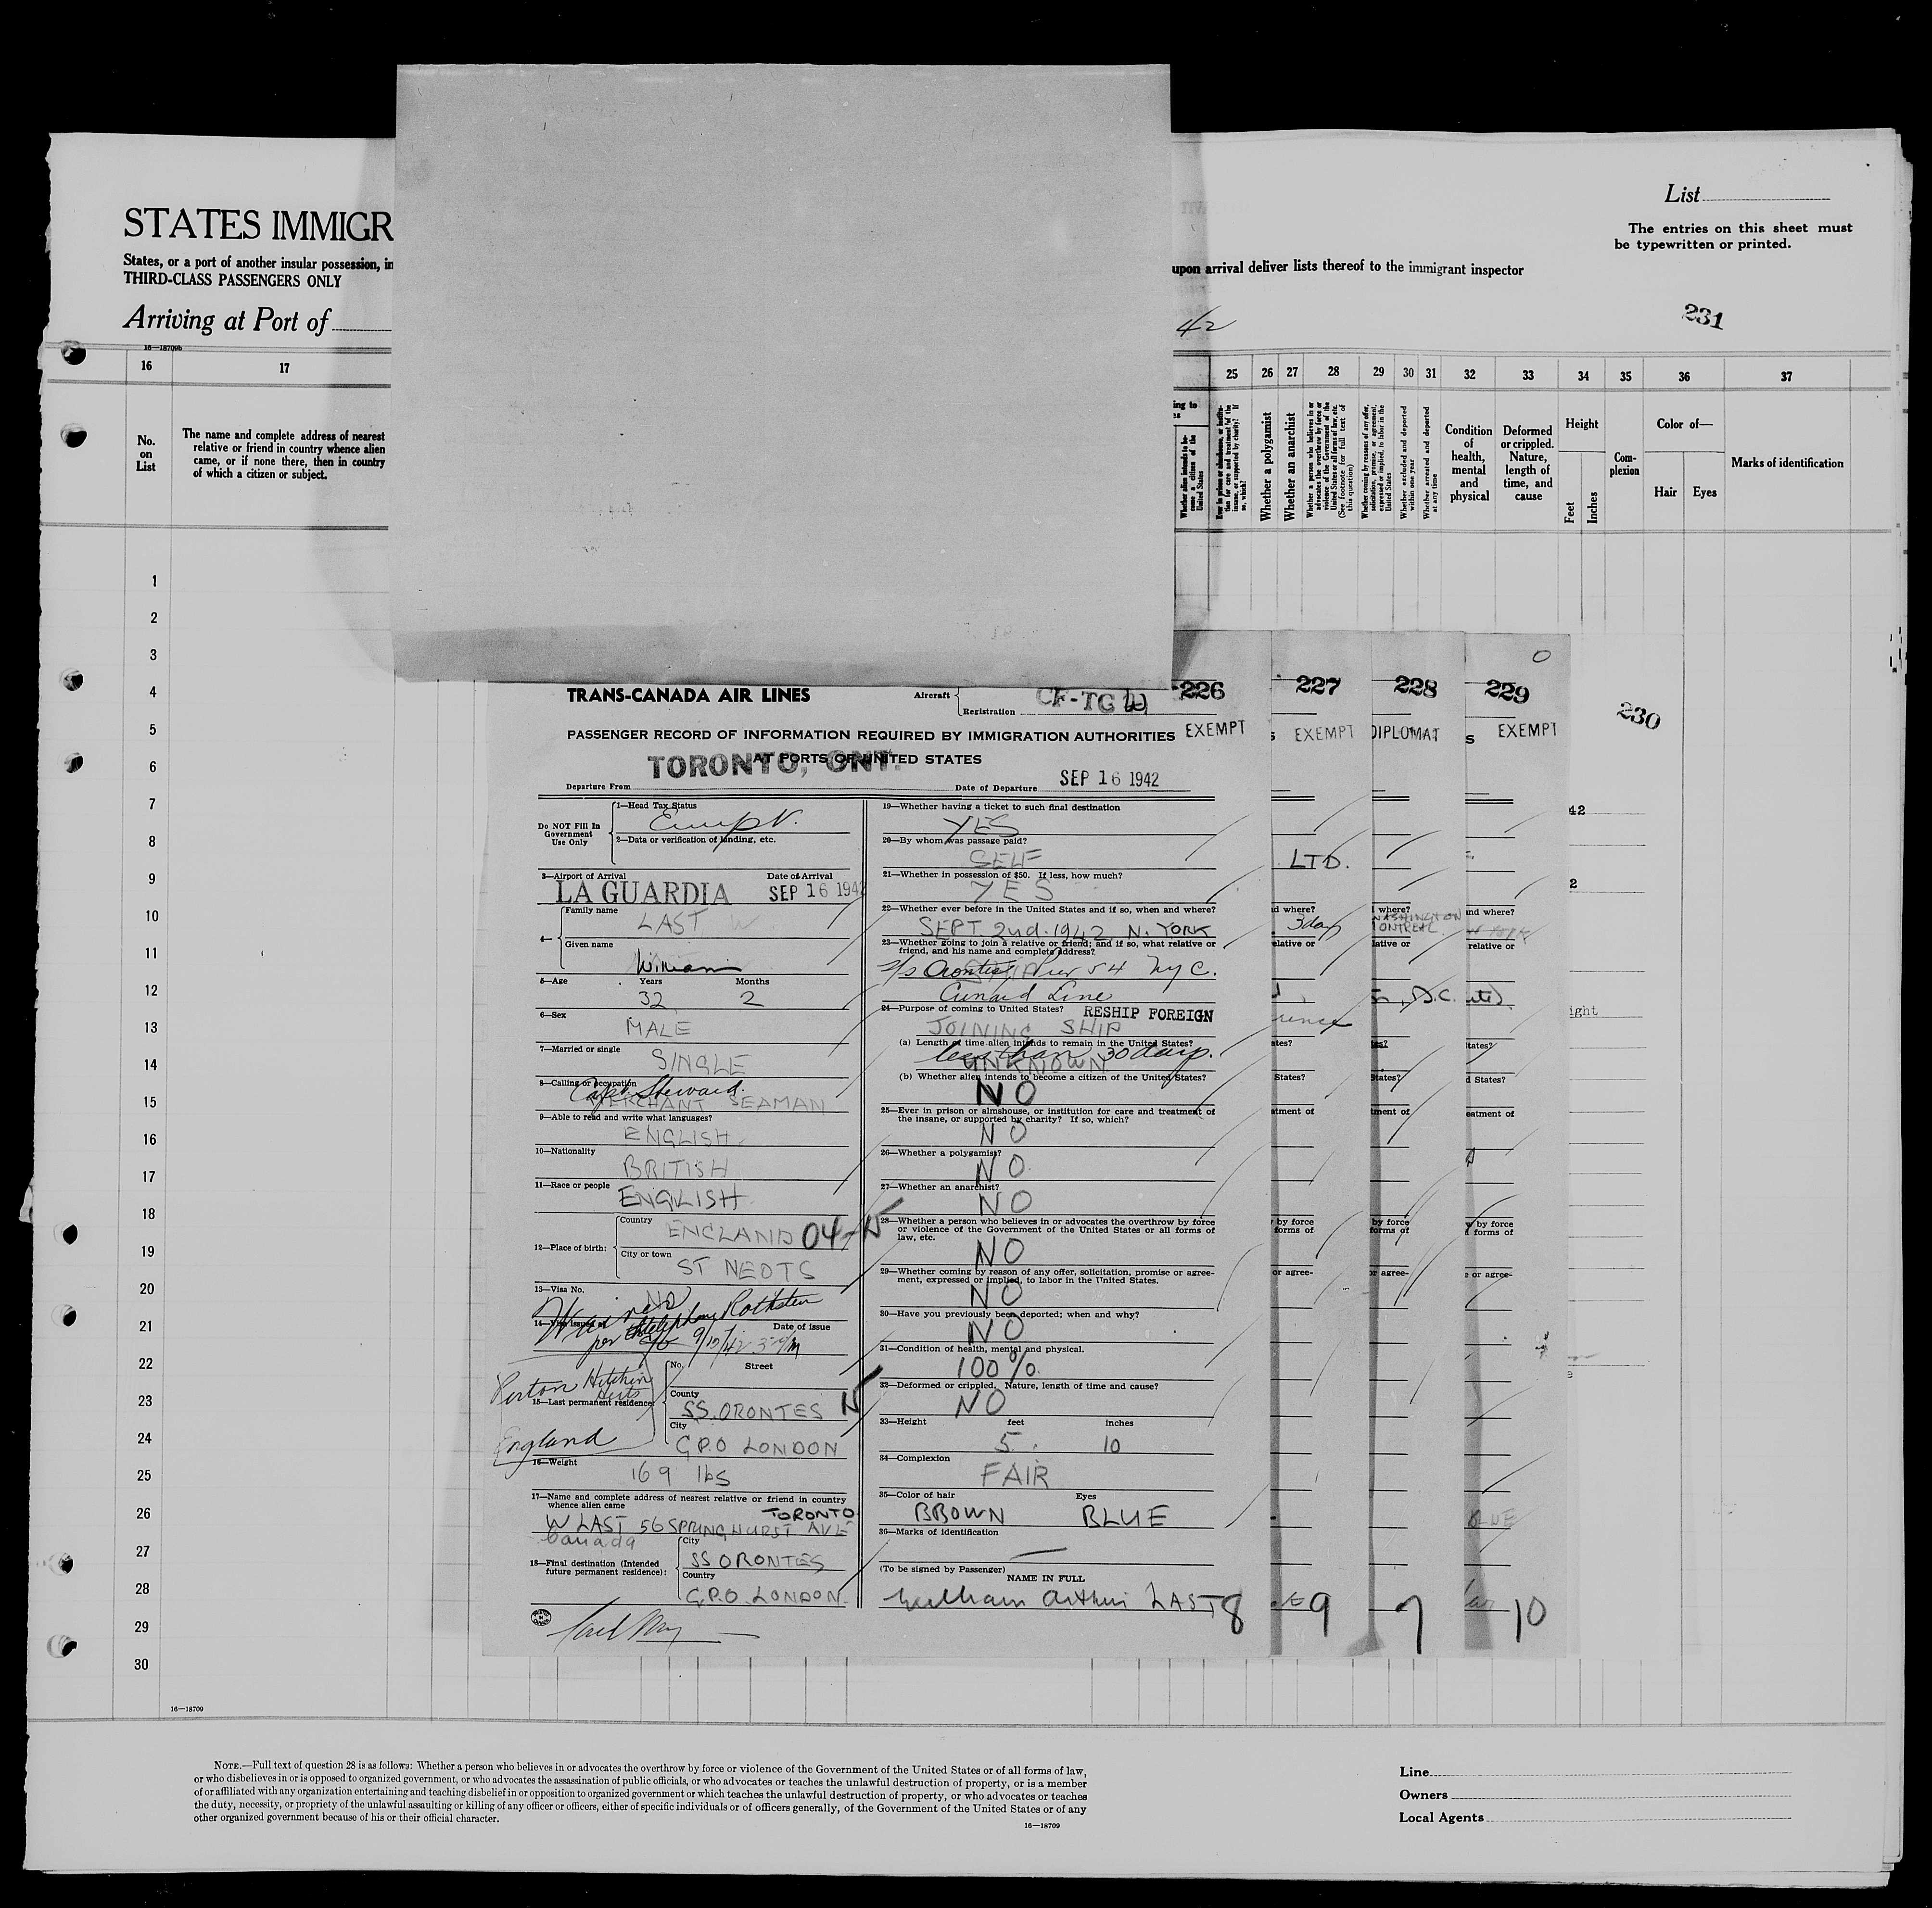 STATES IMMIGR
States, or a port of another insular possession, in
THIRD-CLASS PASSENGERS ONLY
Arriving at Port of
upon arrival deliver lists thereof to the immigrant inspector
List
The entries on this sheet must
be typewritten or printed.
42
231
16—18709b
16 17 25 26 27 28 29 30 31 32 33 34 35 36 37
No.
on
List
The name and complete address of nearest
relative or friend in country whence alien
came, or if none there, then in country
of which a citizen or subject.
Whether alien intends to be-
come a citizen of the
United States
Whether a polygamist
Whether an anarchist
Whether a person who believes in or
advocates the overthrow by force or
violence of the Government of the
United States or all forms of law, etc.
(See footnote for full text of
this question)
Whether coming by reasons of any offer,
solicitation, promise, or agreement,
expressed or implied, to labor in the
United States
Whether excluded and deported
within one year
Whether arrested and deported
at any time
Condition
of
health,
mental
and
physical
Deformed
or crippled.
Nature,
length of
time, and
cause
Height
Feet
Inches
Com-
plexion
Color of—
Hair Eyes
Marks of identification
1
2
3
4
5
6
7
8
9
10
11
12
13
14
15
16
17
18
19
20
21
22
23
24
25
26
27
28
29
30
TRANS-CANADA AIR LINES
Aircraft
Registration CF-TG
226 227 228 229 230
EXEMPT EXEMPT DIPLOMAT EXEMPT
PASSENGER RECORD OF INFORMATION REQUIRED BY IMMIGRATION AUTHORITIES
AT PORTS OF UNITED STATES
Departure From TORONTO, ONT.
Date of Departure SEP 16 1942
Do NOT Fill In
Government
Use Only
1—Head Tax Status
Exempt
2—Data or verification of landing, etc.
3—Airport of Arrival Date of Arrival
LA GUARDIA SEP 16 1942
4—
Family name
LAST W
Given name
William
5—Age Years Months
32 2
6—Sex
MALE
7—Married or single
SINGLE
8—Calling or occupation
Capt. Steward.
MERCHANT SEAMAN
9—Able to read and write what languages?
ENGLISH
10—Nationality
BRITISH
11—Race or people
ENGLISH
12—Place of birth:
Country
ENGLAND
City or town
ST NEOTS
13—Visa No.
NO
14—Visa issued at Date of issue
Waived
per telephone
9/10/42
15—Last permanent residence:
No. Street
County
SS. ORONTES
City
G.P.O LONDON
Pirton Hitchin
Herts
England
16—Weight
169 lbs
17—Name and complete address of nearest relative or friend in country
whence alien came
TORONTO
W LAST 56 SPRINGHURST AVE
Canada
18—Final destination (Intended
future permanent residence):
City
SS ORONTES
Country
G.P.O. LONDON
19—Whether having a ticket to such final destination
YES
20—By whom was passage paid?
SELF
21—Whether in possession of $50. If less, how much?
YES
22—Whether ever before in the United States and if so, when and where?
SEPT. 2nd. 1942 N. YORK
23—Whether going to join a relative or friend; and if so, what relative or
friend, and his name and complete address?
s/s Orontes Pier 54 NyC.
Cunard Line
24—Purpose of coming to United States?
RESHIP FOREIGN
JOINING SHIP
(a) Length of time alien intends to remain in the United States?
less than 30 days.
UNKNOWN
(b) Whether alien intends to become a citizen of the United States?
NO
25—Ever in prison or almshouse, or institution for care and treatment of
the insane, or supported by charity? If so, which?
NO
26—Whether a polygamist?
NO
27—Whether an anarchist?
NO
28—Whether a person who believes in or advocates the overthrow by force
or violence of the Government of the United States or all forms of
law, etc.
NO
29—Whether coming by reason of any offer, solicitation, promise or agree-
ment, expressed or implied, to labor in the United States.
NO
30—Have you previously been deported; when and why?
NO
31—Condition of health, mental and physical.
100%.
32—Deformed or crippled. Nature, length of time and cause?
NO
33—Height feet inches
5 10
34—Complexion
FAIR
35—Color of hair Eyes
BROWN BLUE
36—Marks of identification
(To be signed by Passenger)
NAME IN FULL
William Arthur LAST
8 9 7 10
LTD.
3 days
WASHINGTON
MONTREAL
BLUE
16—18709
NOTE.—Full text of question 28 is as follows: Whether a person who believes in or advocates the overthrow by force or violence of the Government of the United States or of all forms of law,
or who disbelieves in or is opposed to organized government, or who advocates the assassination of public officials, or who advocates or teaches the unlawful destruction of property, or is a member
of or affiliated with any organization entertaining and teaching disbelief in or opposition to organized government or which teaches the unlawful destruction of property, or who advocates or teaches
the duty, necessity, or propriety of the unlawful assaulting or killing of any officer or officers, either of specific individuals or of officers generally, of the Government of the United States or of any
other organized government because of his or their official character.
16—18709
Line
Owners
Local Agents